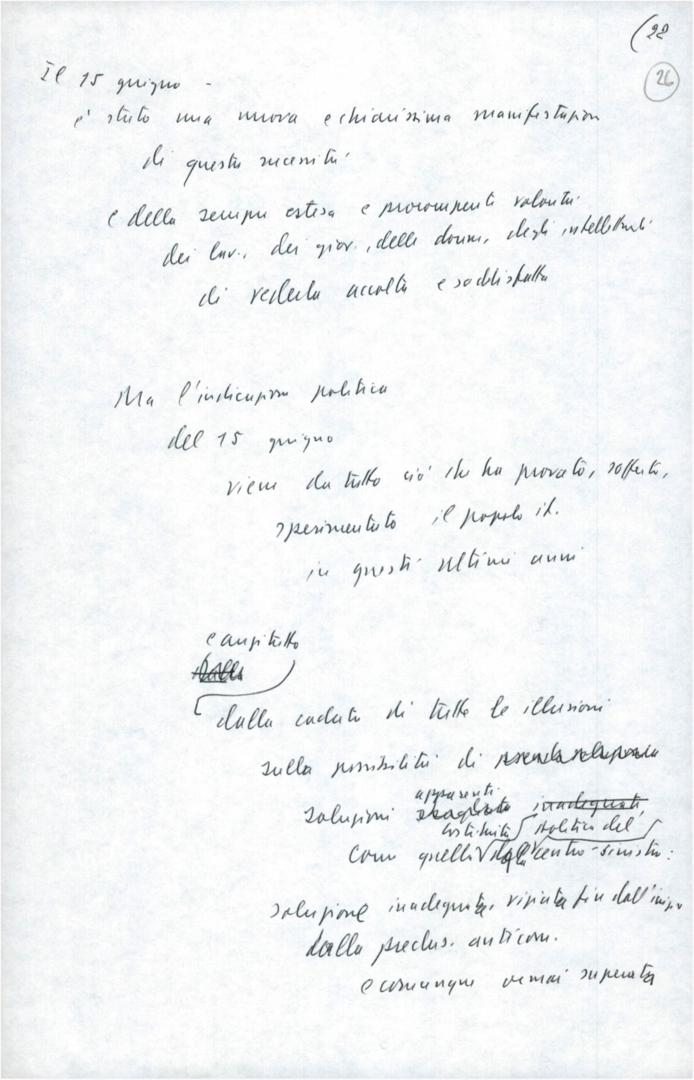 (22
26
Il 15 giugno -
è stata una nuova e chiarissima manifestazione
di questa necessità
e della sempre estesa e prorompente volontà
dei lav., dei giov., delle donne, degli intellettuali
di vederla accolta e soddisfatta
Ma l'indicazione politica
del 15 giugno
viene da tutto ciò che ha provato, sofferto,
sperimentato il popolo it.
in questi ultimi anni
e anzitutto
dalla
dalla caduta di tutte le illusioni
sulla possibilità di
apparenti
soluzioni inadeguati
costituita politica del
come quella centro-sinistra:
soluzione inadeguata, viziata fin dall'inizio
dalla preclus. anticom.
e comunque ormai superata